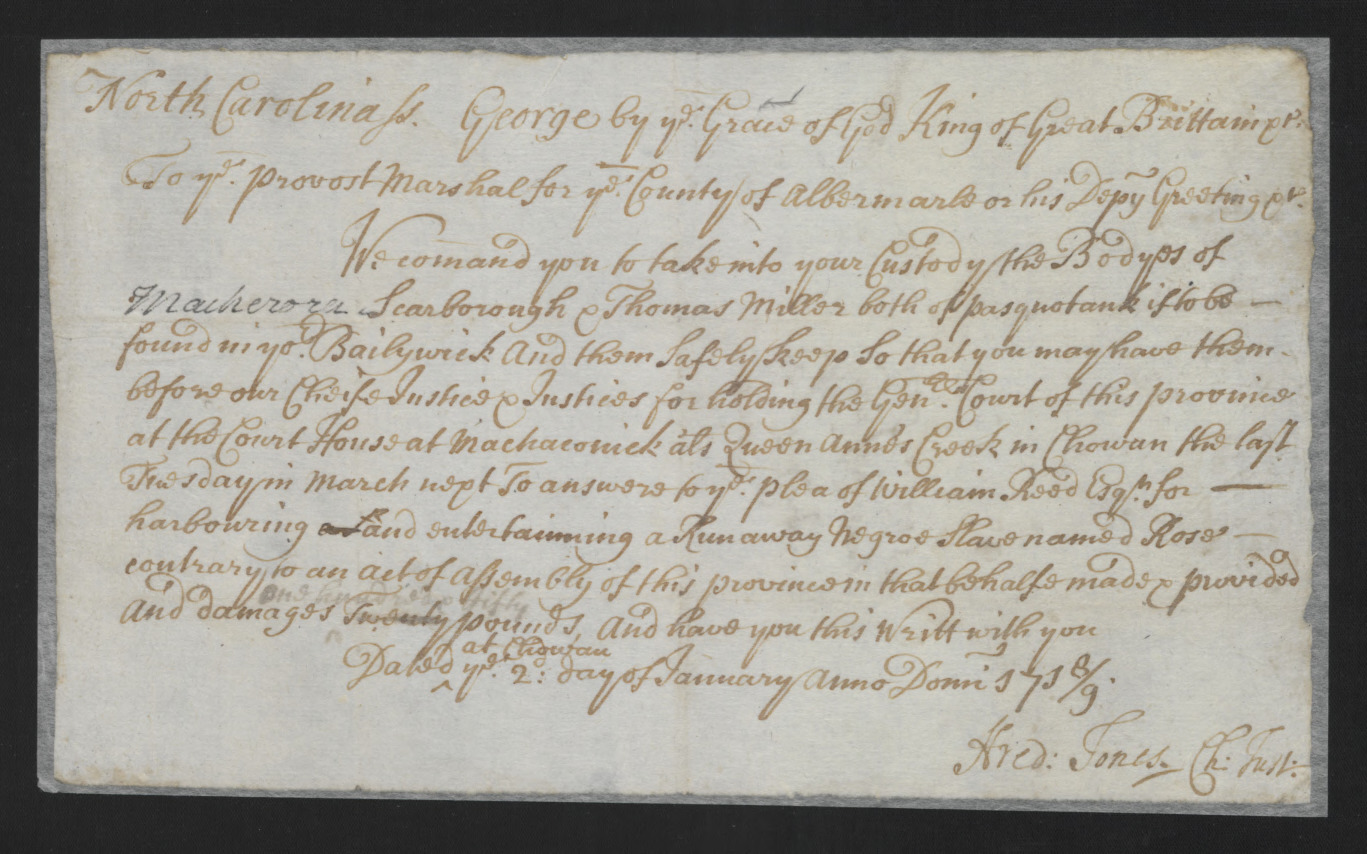 North Carolina ss. George by ye. Grace of God King of Great Brittain &c.
To ye. provost Marshal for ye. County of Albermarle or his Depy Greeting &c.
We comand you to take into your Custody the Bodyes of
Macherora Scarborough & Thomas Miller both of pasquotank if to be
found in yor. Bailywick And them safely keep so that you may have them
before our Cheife Justice & Justices for holding the Genrll. Court of this province
at the Court House at Machacomick als Queen Anne's Creek in Chowan the last
Tuesday in March next To answere to ye. plea of William Reed Esqr. for
harbouring and entertainning a Runaway Negroe Slave named Rose
contrary to an act of Assembly of this province in that behalfe made & provided
one hundred & fifty
And damages Twenty pounds, And have you this Writt with you
at Chowan
Dated ^ ye. 2d: day of January Anno Domi 1718/9.
Fred: Jones Ch: Just: